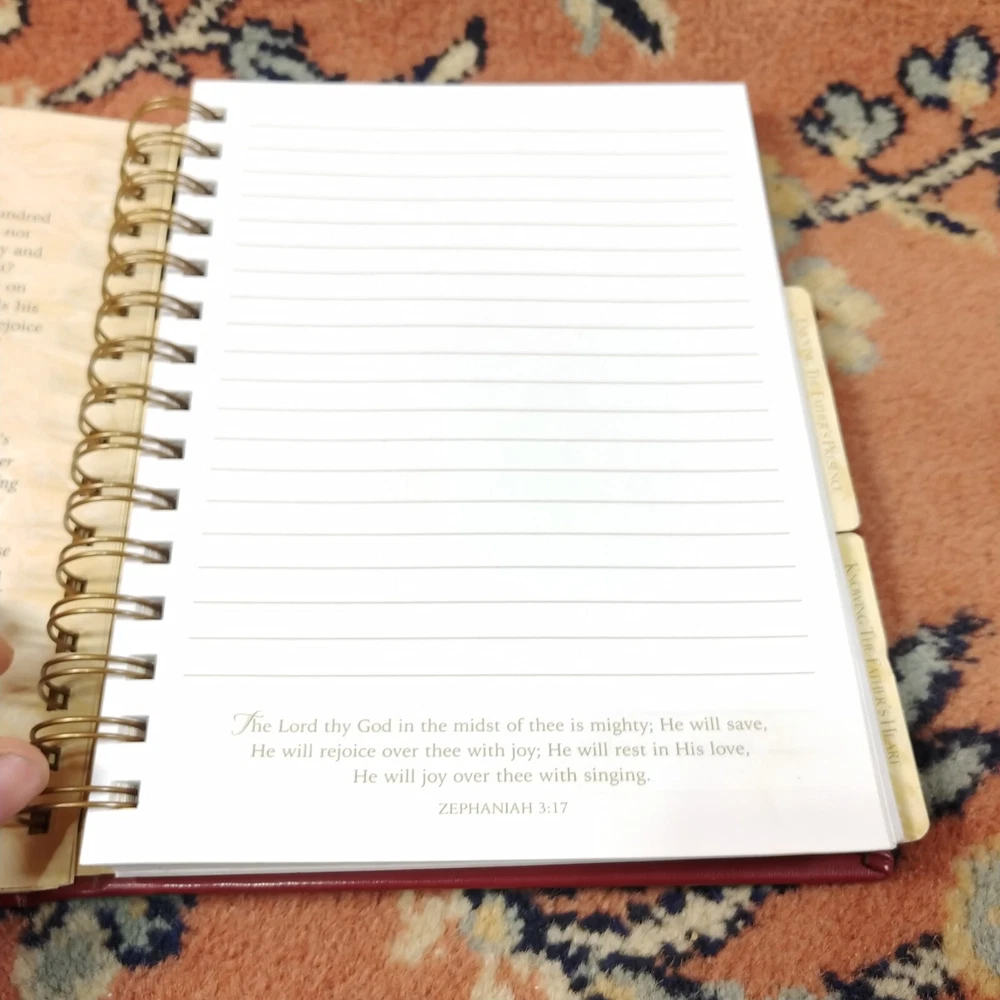 undred
not
y and
on
s his
ejoice
's
er
ng
se
The Lord thy God in the midst of thee is mighty; He will save,
He will rejoice over thee with joy; He will rest in His love,
He will joy over thee with singing.
ZEPHANIAH 3:17
The Father's Presence
Knowing The Father's Heart